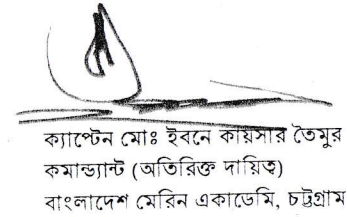 ক্যাপ্টেন মোঃ ইবনে কায়সার তৈমুর
কমান্ড্যান্ট (অতিরিক্ত দায়িত্ব)
বাংলাদেশ মেরিন একাডেমি, চট্টগ্রাম